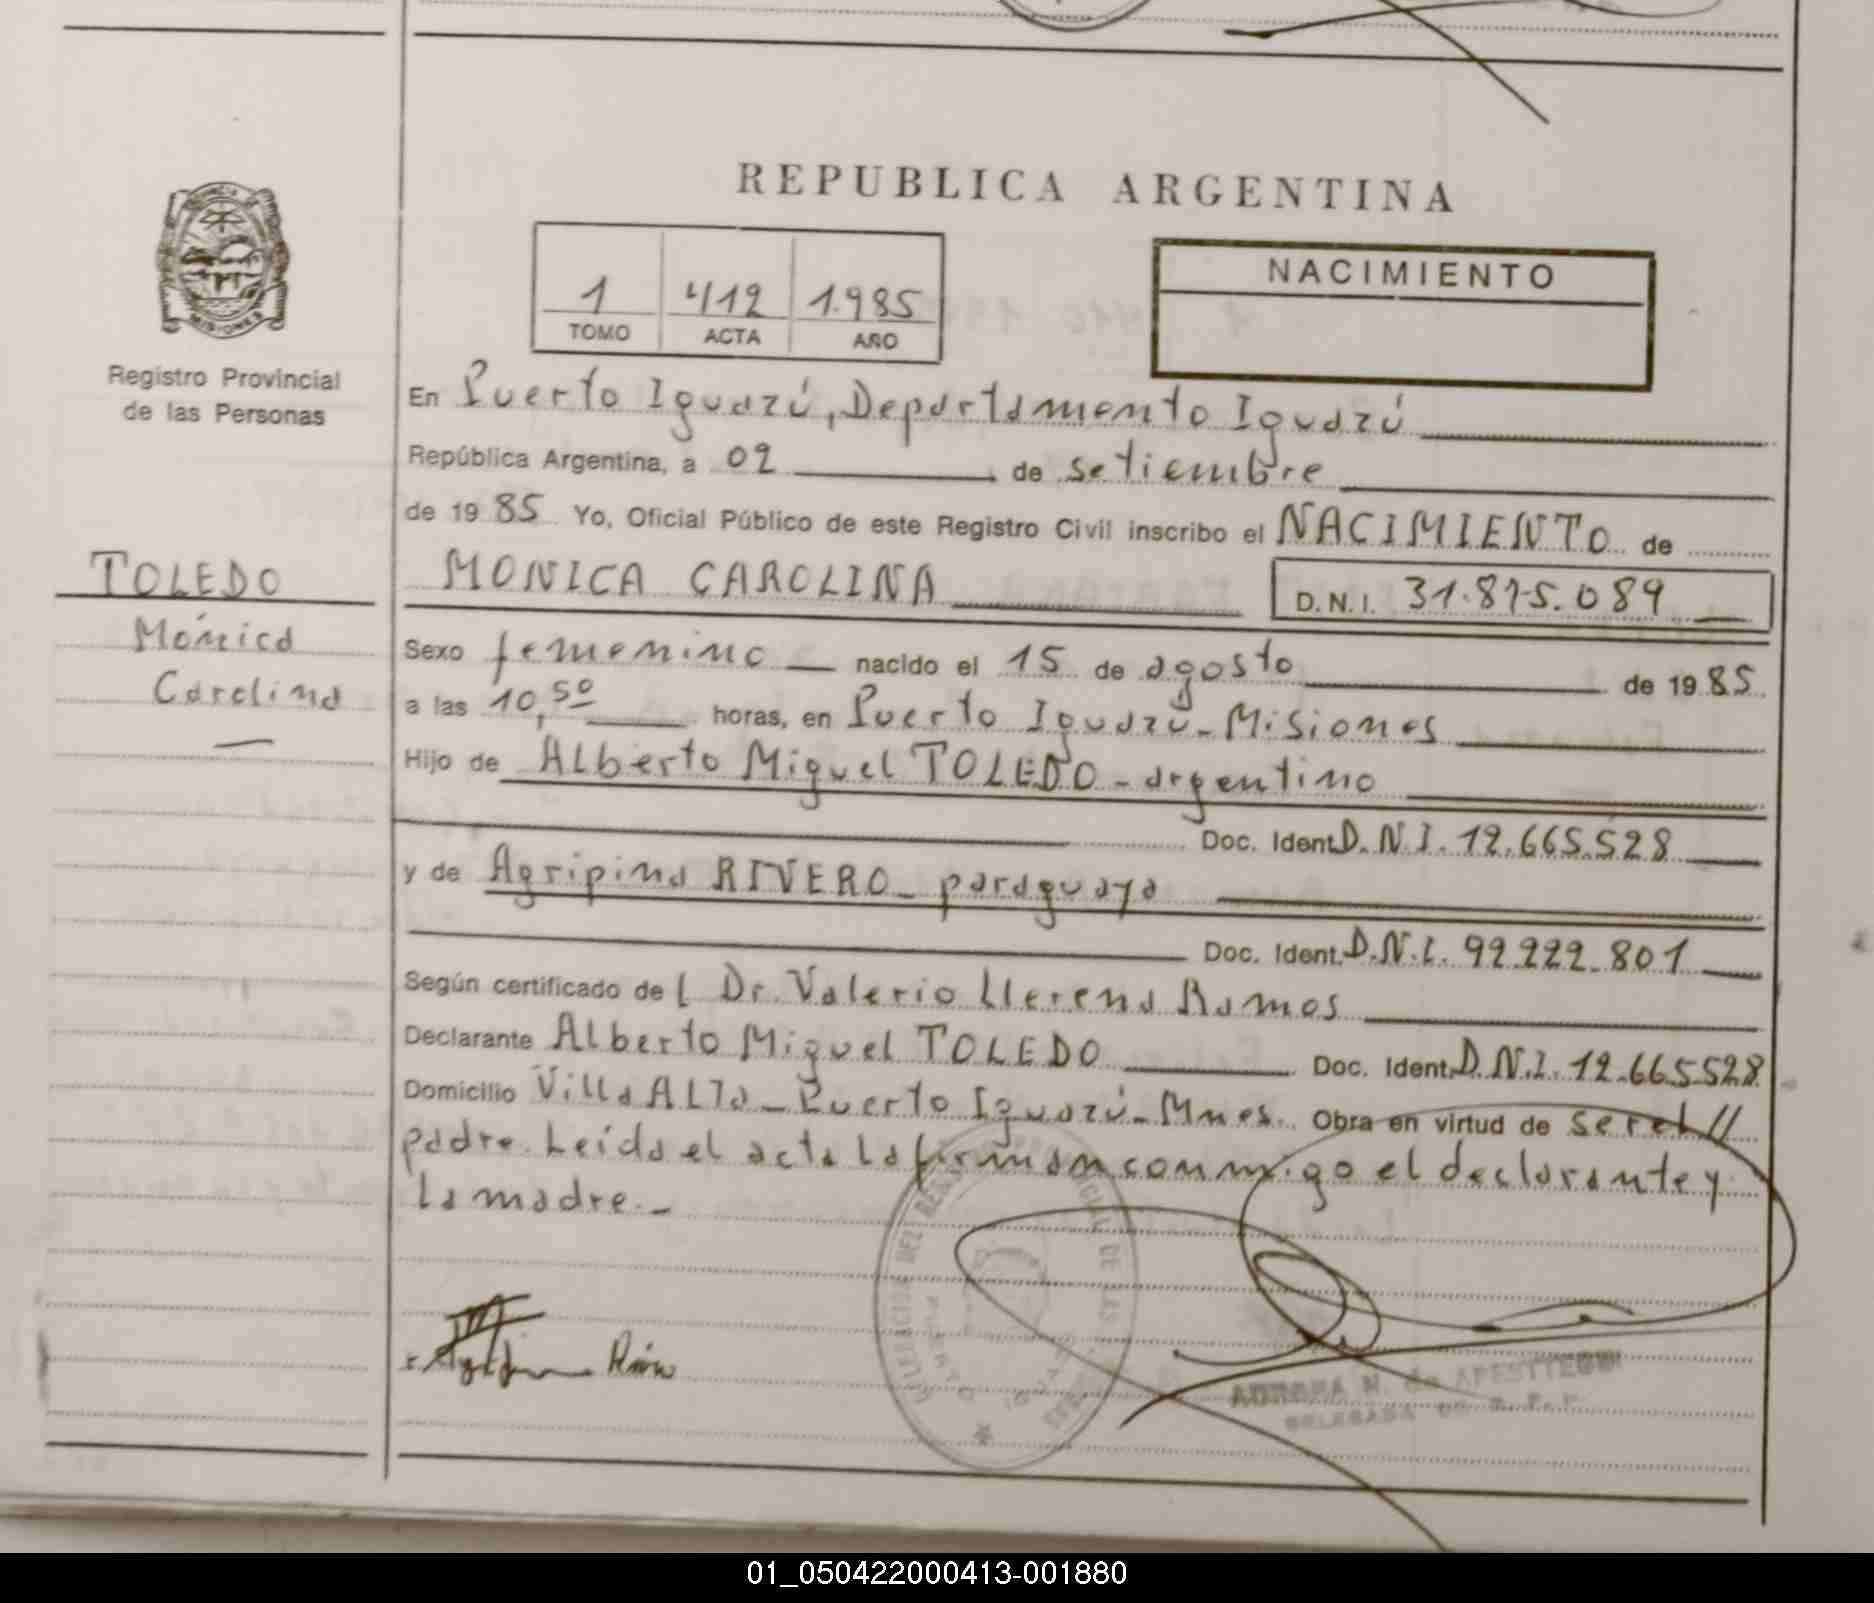 REPUBLICA ARGENTINA
NACIMIENTO
1 412 1.985
TOMO ACTA AÑO
Registro Provincial
de las Personas
En Puerto Iguazú, Departamento Iguazú
República Argentina, a 02 de setiembre
de 1985 Yo, Oficial Público de este Registro Civil inscribo el NACIMIENTO de
TOLEDO
Mónica
Carolina
MONICA CAROLINA D.N.I. 31.875.089
Sexo femenino nacido el 15 de agosto de 1985
a las 10,50 horas, en Puerto Iguazú - Misiones
Hijo de Alberto Miguel TOLEDO - argentino
Doc. Ident. D.N.I. 12.665.528
y de Agripina RIVERO - paraguaya
Doc. Ident. D.N.I. 92.222.801
Según certificado del Dr. Valerio Llerena Ramos
Declarante Alberto Miguel TOLEDO Doc. Ident. D.N.I. 12.665528
Domicilio Villa ALTA - Puerto Iguazú - Mnes. Obra en virtud de ser el //
padre. Leída el acta la firman conmigo el declarante y
la madre. -
DELEGACION DEL REGISTRO PROVINCIAL DE LAS PERSONAS
PUERTO IGUAZU
DELEGADA
01_050422000413-001880